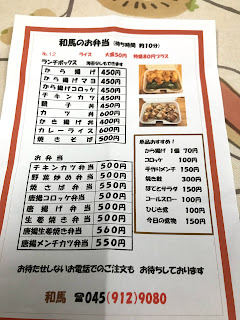 和馬のお弁当 (待ち時間 約10分)
No.12 ライス 大盛50円 特盛80円プラス
ランチボックス 海苔なしもできます
から揚げ 450円
から揚げマヨ 450円
から揚げコロッケ 450円
チキンカツ 450円
親子丼 450円
カツ丼 600円
かき揚げ丼 400円
カレーライス 600円
焼きそば 500円
お弁当
チキンカツ弁当 500円
野菜炒め弁当 500円
焼きさば弁当 550円
唐揚コロッケ弁当 500円
唐揚げ弁当 500円
生姜焼き弁当 500円
唐揚生姜焼き弁当 560円
唐揚メンチカツ弁当 550円
単品おすすめ!
から揚げ 1個 70円
コロッケ 100円
手作りメンチ 150円
焼き餃 300円
ぽてとサラダ 150円
コールスロー 100円
ひじき煮 100円
今日の煮物 150円
お待たせしない!お電話でのご注文も お待ちしております
和馬 ☎045(912)9080